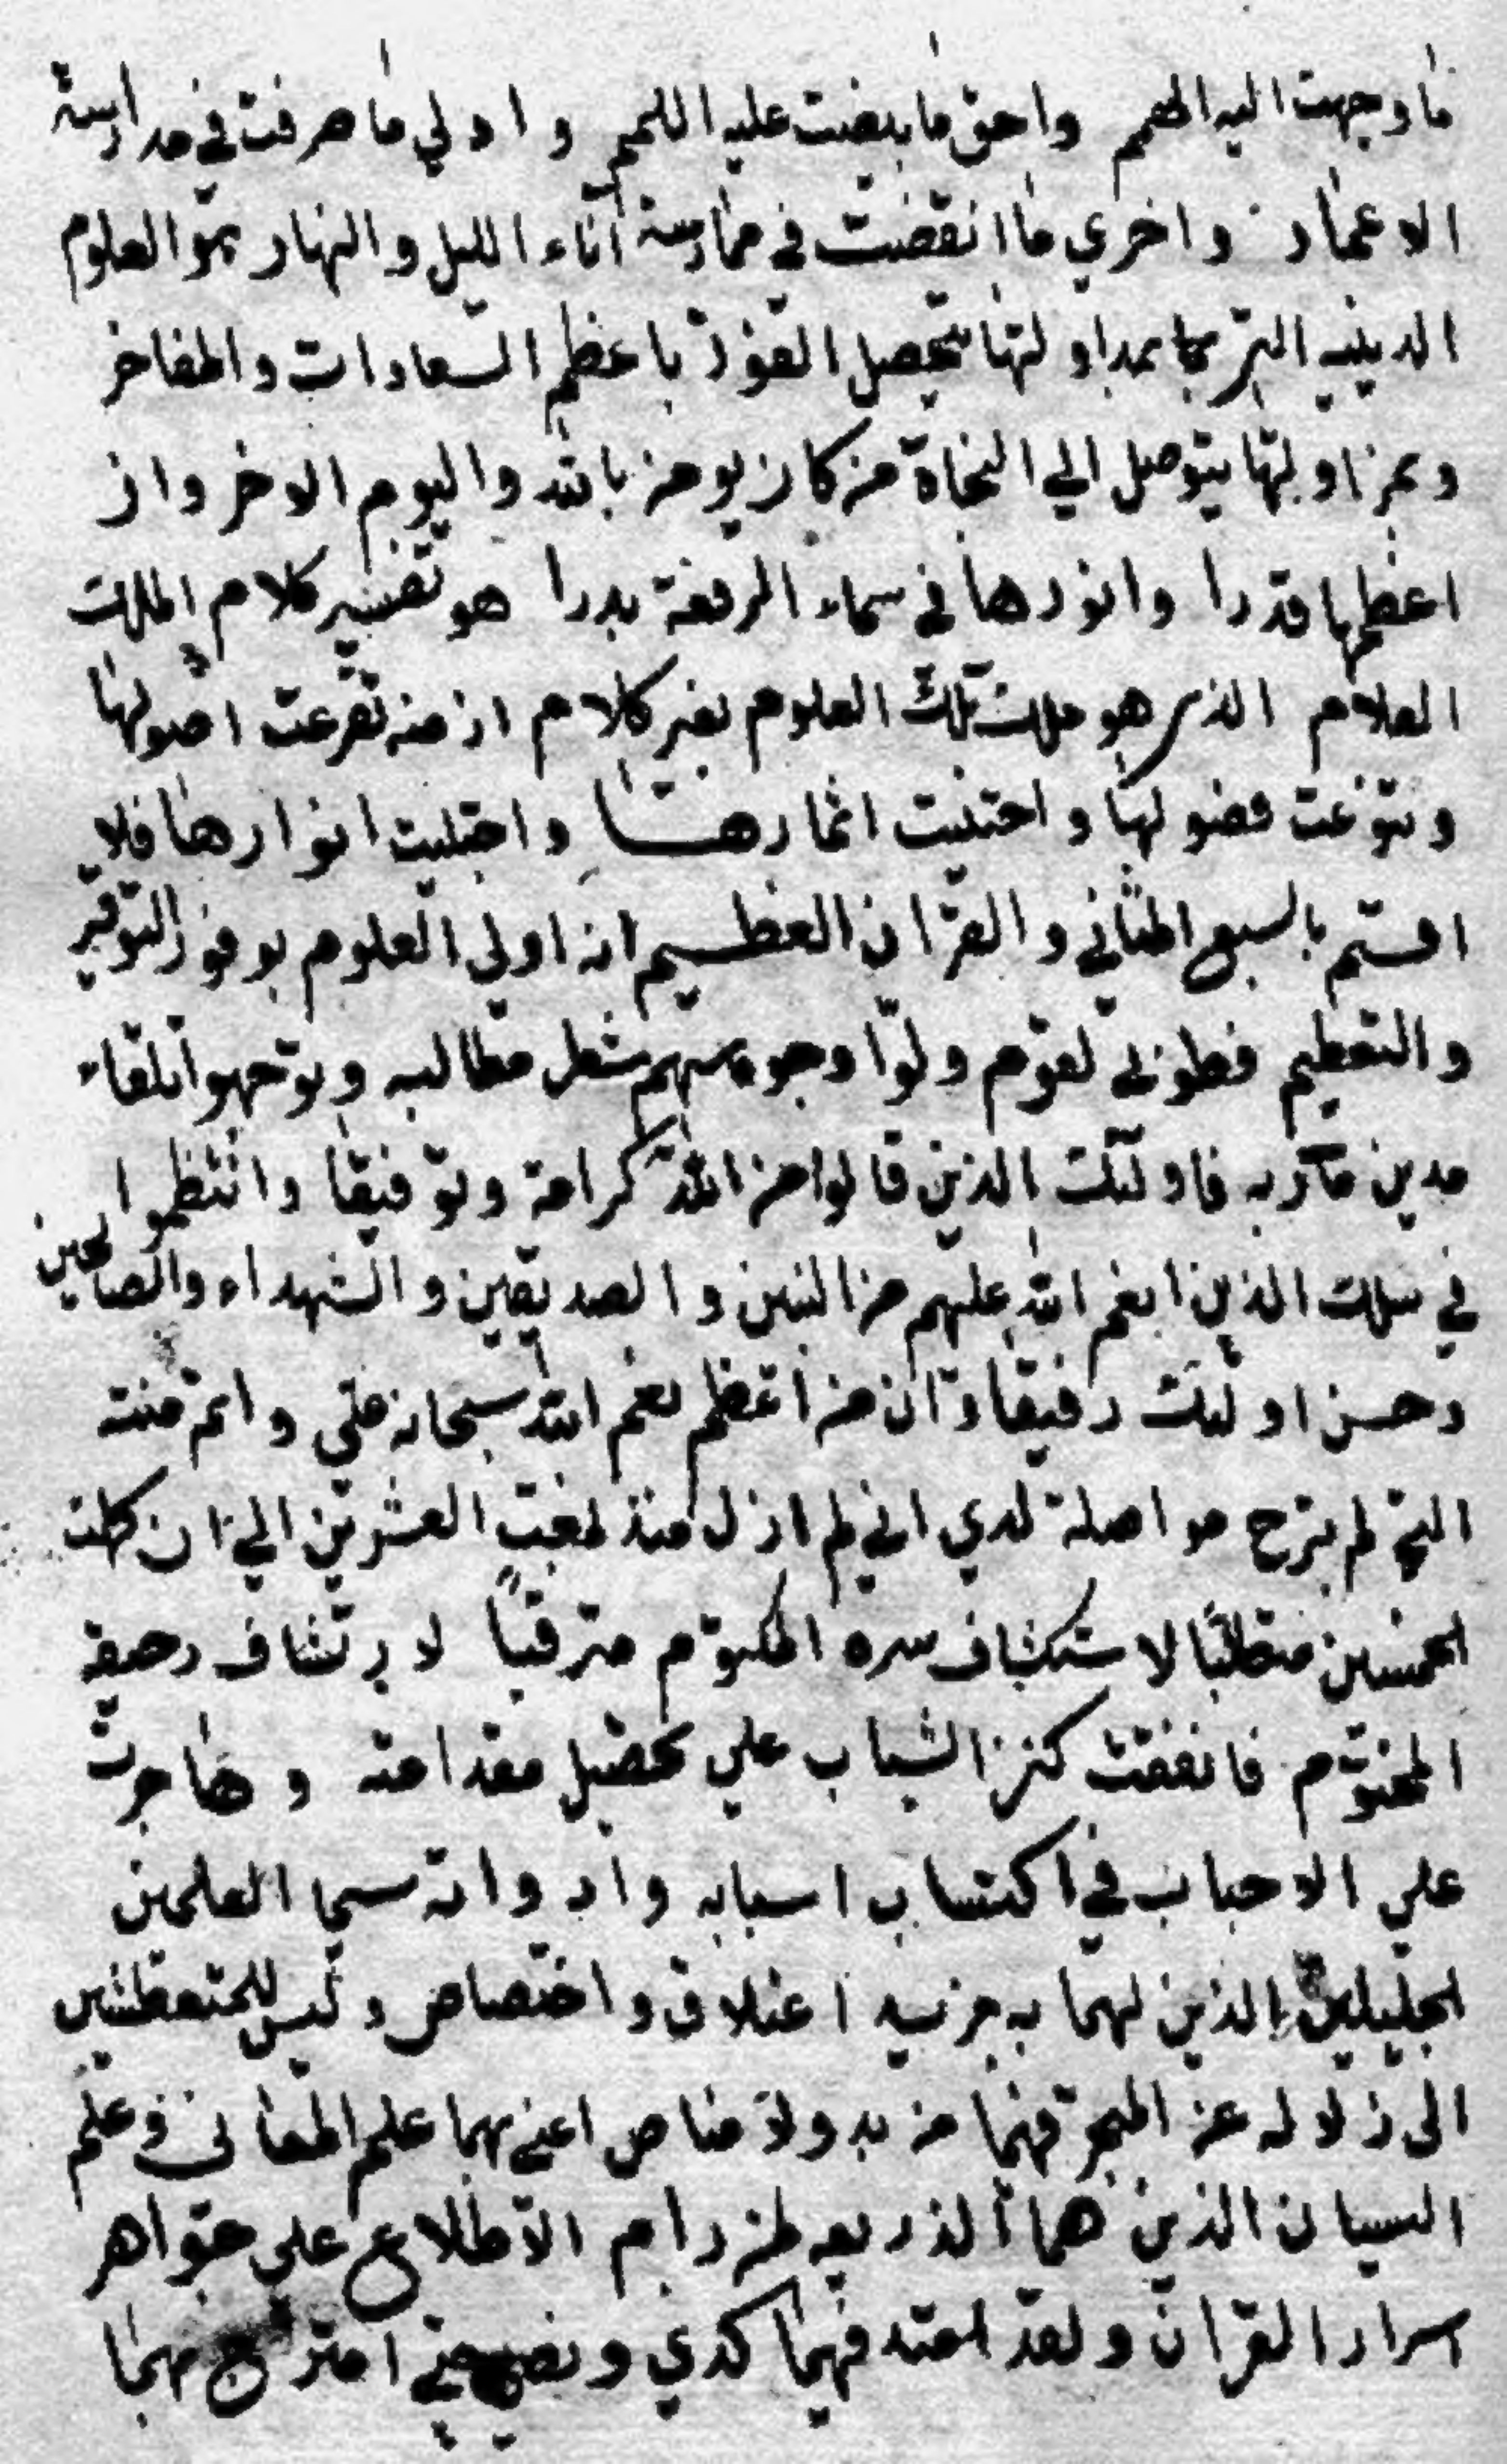 ما وجهت اليه الهمم واحق ما بيضت عليه اللمم واولي ما صرفت في مدارسة
الاعمار واخري ما انقضت في ممارسة آناء الليل والنهار هو العلوم
الدينيه التي بمداولتها تحصل الفوز باعظم السعادات والمفاخر
وبمزاولتها يتوصل الي النجاة من كان يومن بالله واليوم الاخر وان
اعظمها قدرا وانورها في سماء الرفعة بدرا هو تفسير كلام الملك
العلام الذي هو ملك تلك العلوم بغير كلام اذ منه تفرعت اصولها
وتنوعت فصولها واجتنيت اثمارها واجتليت انوارها فلا
اقسم بالسبع المثاني والقران العظيم انه اولي العلوم بوفور التوقير
والتعظيم فطوبي لقوم ولوا وجوههم شطر مطالبه وتوجهوا تلقاء
مدين مآربه فاولئك الذين قالوا من الله كرامة وتوفيقا وانتظموا
في سلك الذين انعم الله عليهم من النبين والصديقين والشهداء والصالحين
وحسن اولئك رفيقا وان من اعظم نعم الله سبحانه علي واتم مننه
التي لم تبرح مواصلة لدي اني لم ازل منذ لغبت العشرين الي ان كملت
الخمسين متطلبًا لاستكشاف سره المكتوم مترقبًا لارتشاف رحيقه
المختوم فانفقت كنز الشباب علي تحصيل مقدامته وهاجرت
علي الاحباب في اكتساب اسبابه وادواته سيما العلمين
الجليلين الذين لهما به مزيد اعتلاق واختصاص وليس للمتعطشين
الى زلاله عن التبحر فيهما من بد ولا مناص اعني بهما علم المعاني وعلم
البيان الذين هما الذريعه لمن رام الاطلاع علي جواهر
اسرار القران ولقد فيهما كدي امتزج بهما